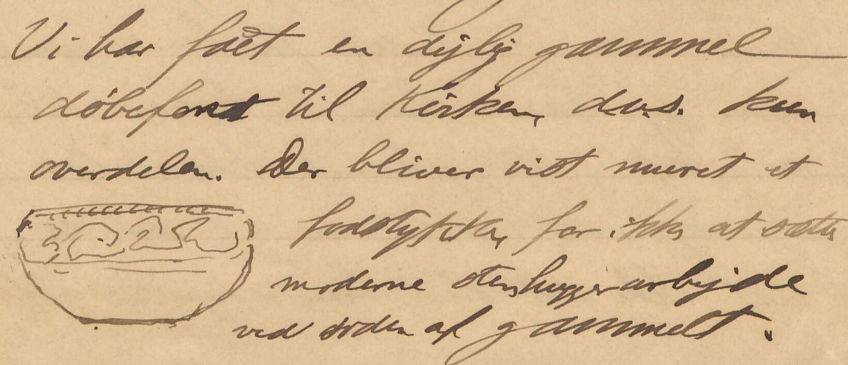 Vi har fået en dejlig gammel
døbefont til Kirken, dvs. kun
overdelen. Der bliver vist muret et
fodstykke, for ikke at sætte
moderne stenhuggerarbejde
ved siden af gammelt.